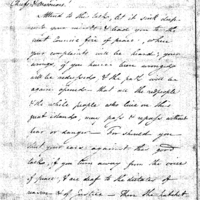 Chiefs & Warriors!
Attend to this talk, let it sink deep
into your minds & lead you to the
great council fire of peace. Where
your complaints will be heard, your
wrongs, if you have been wronged
will be redressed, & the path will be
again opened that are the
& the white people who live on this
great island, may pass & repass without
fear or danger. For should you
your ears against this good
talk, & you turn away from the voice
of peace, & are deaf to the dictates of
reason & of justice — then the hatchet